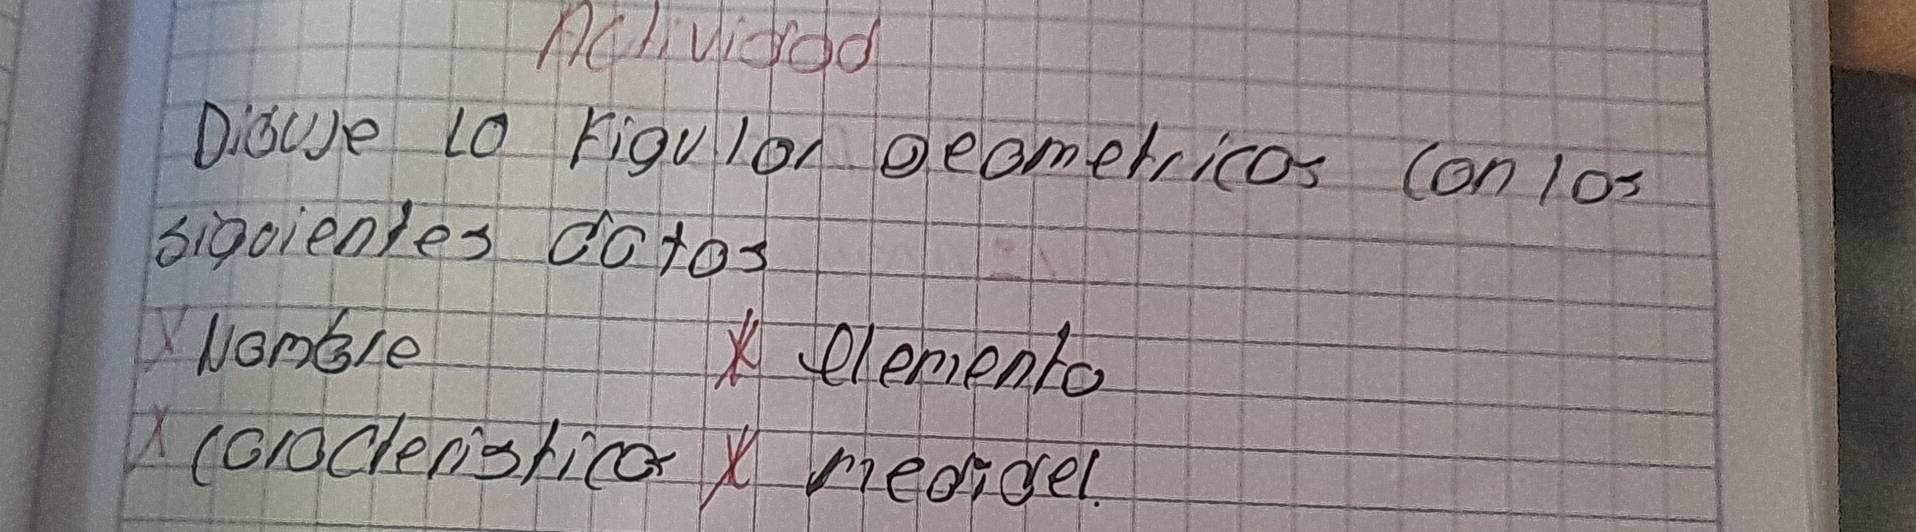 Actividad
Dibuje la Figular geometricas con los
siguientes datos
x Nombre x elemento
x caracteristica x medidel.